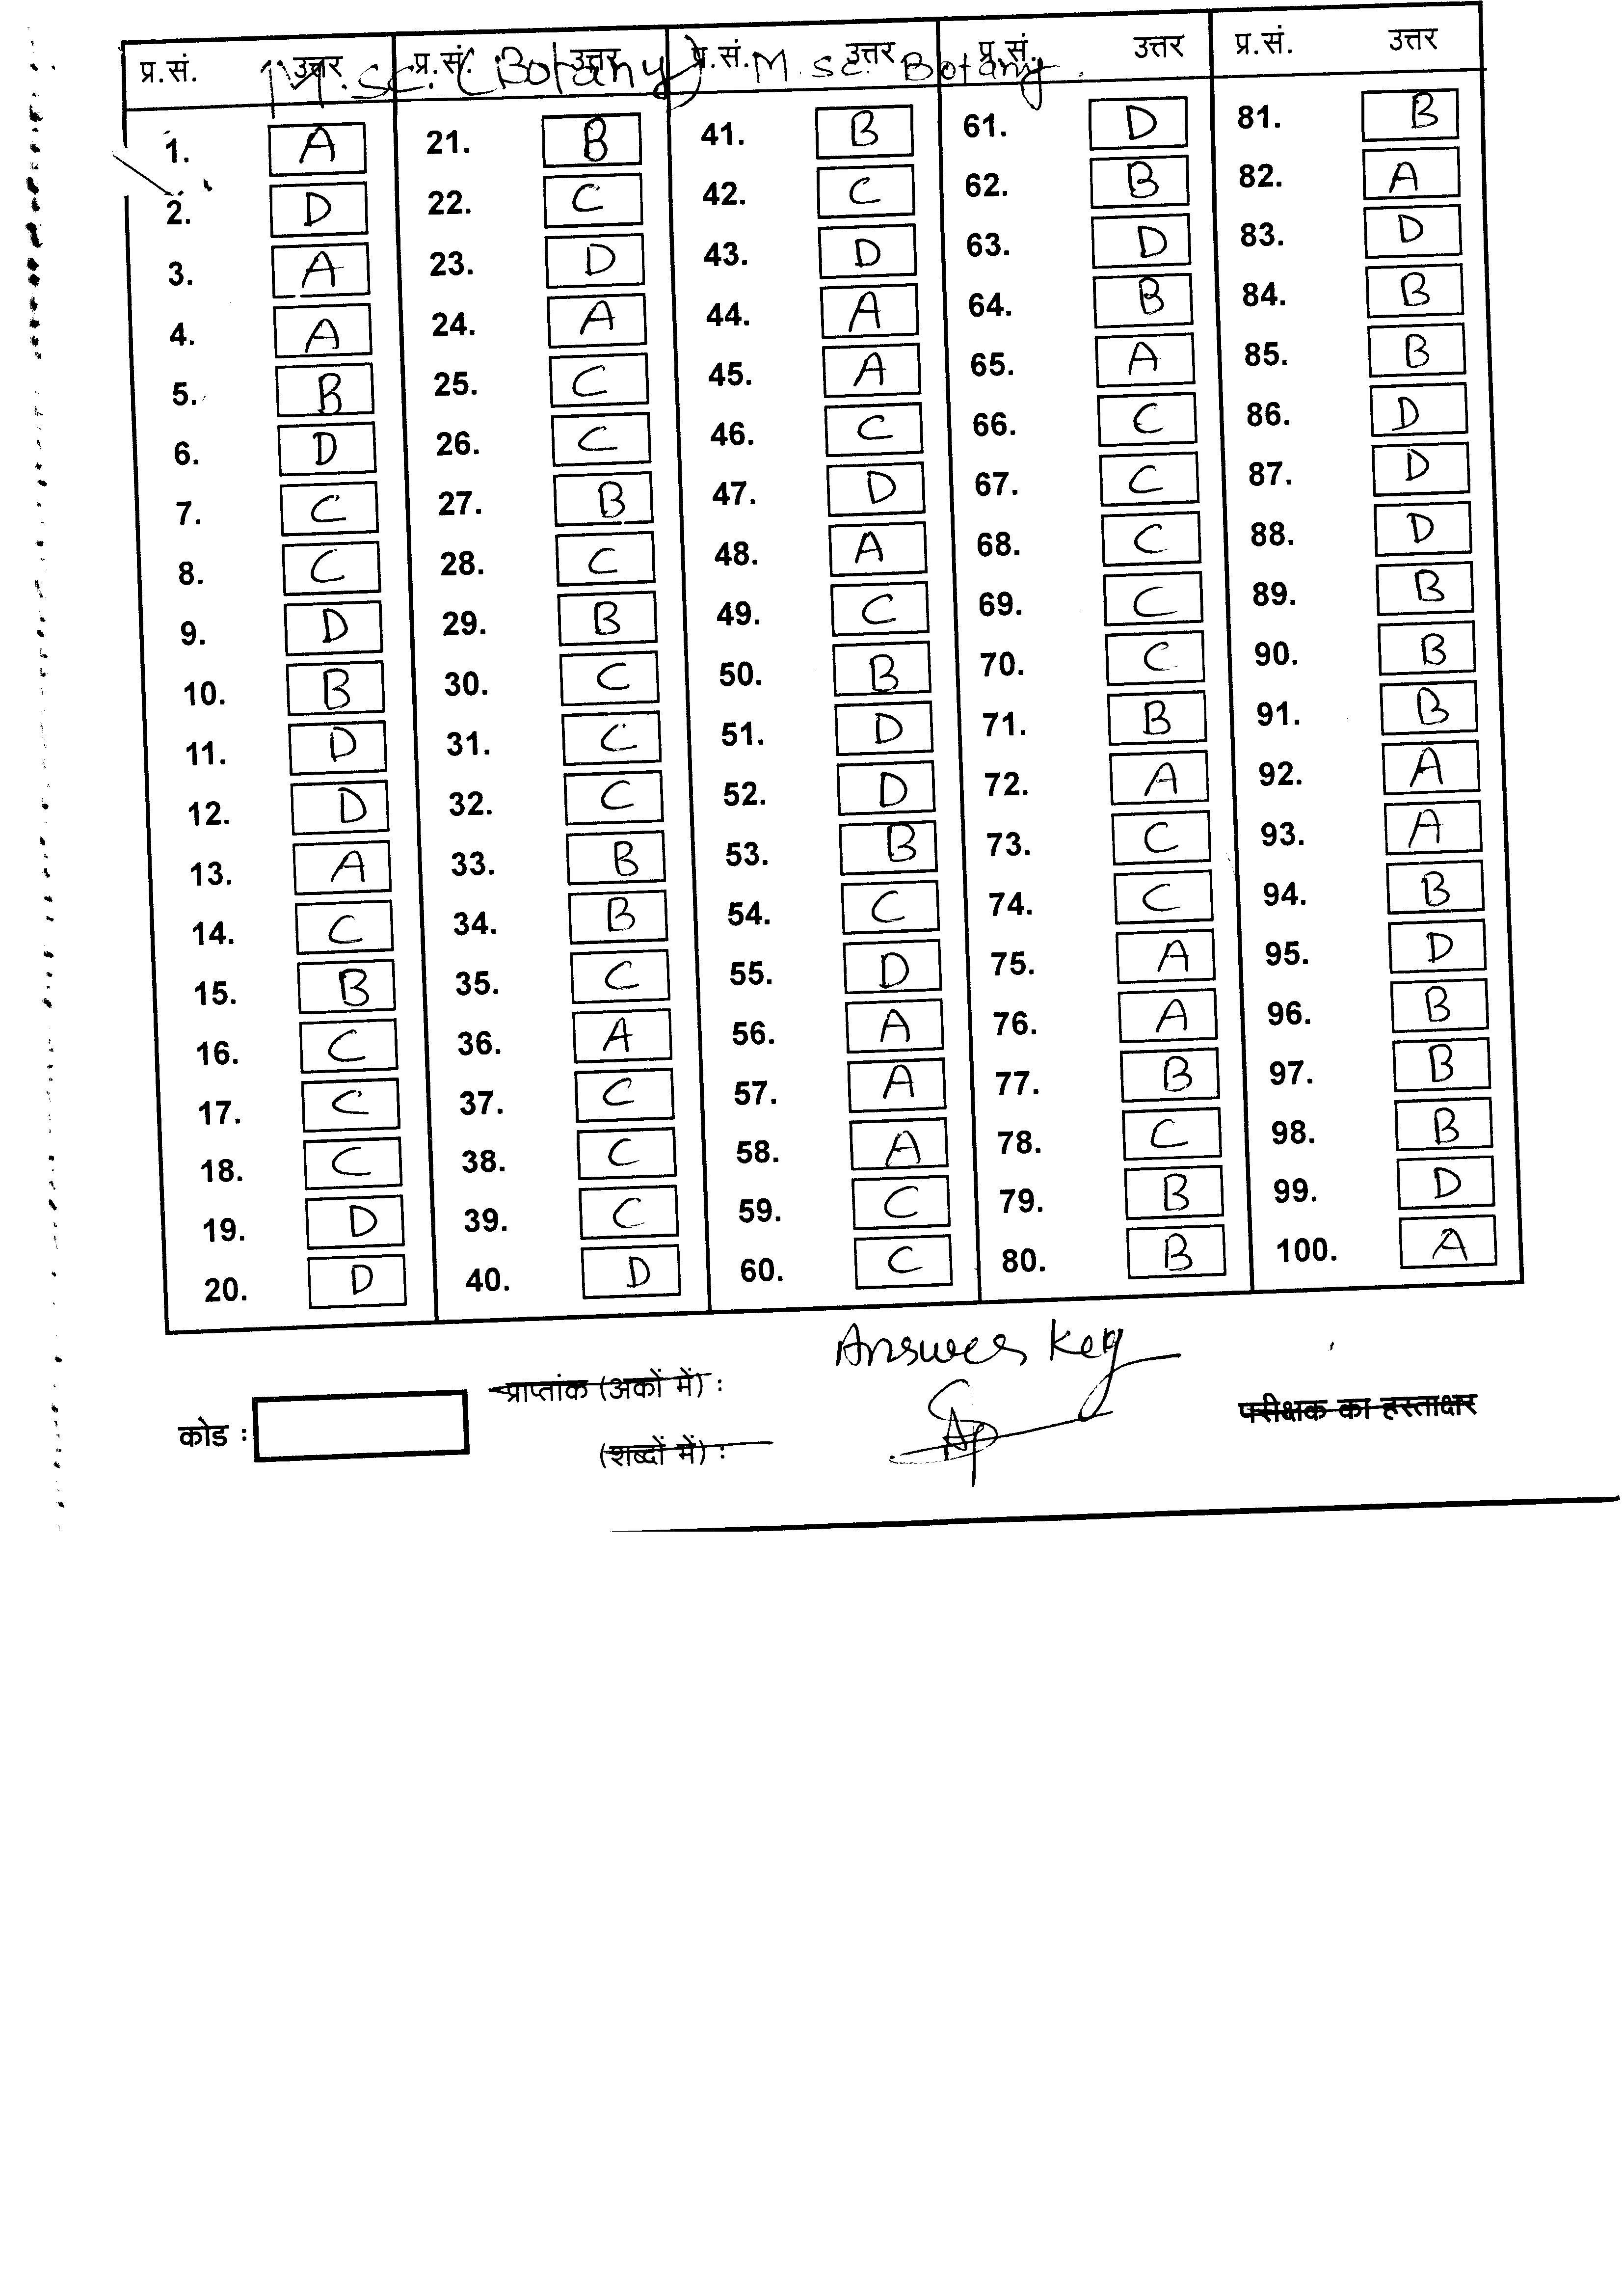 प्र.सं. उत्तर प्र.सं. उत्तर प्र.सं. उत्तर प्र.सं. उत्तर प्र.सं. उत्तर
M.sc. (Botany) M.sc. Botany
1. A 21. B 41. B 61. D 81. B
2. D 22. C 42. C 62. B 82. A
3. A 23. D 43. D 63. D 83. D
4. A 24. A 44. A 64. B 84. B
5. B 25. C 45. A 65. A 85. B
6. D 26. C 46. C 66. C 86. D
7. C 27. B 47. D 67. C 87. D
8. C 28. C 48. A 68. C 88. D
9. D 29. B 49. C 69. C 89. B
10. B 30. C 50. B 70. C 90. B
11. D 31. C 51. D 71. B 91. B
12. D 32. C 52. D 72. A 92. A
13. A 33. B 53. B 73. C 93. A
14. C 34. B 54. C 74. C 94. B
15. B 35. C 55. D 75. A 95. D
16. C 36. A 56. A 76. A 96. B
17. C 37. C 57. A 77. B 97. B
18. C 38. C 58. A 78. C 98. B
19. D 39. C 59. C 79. B 99. D
20. D 40. D 60. C 80. B 100. A
Answer Key
प्राप्तांक (अकों में) :
कोड : परीक्षक का हस्ताक्षर
(शब्दों में) :